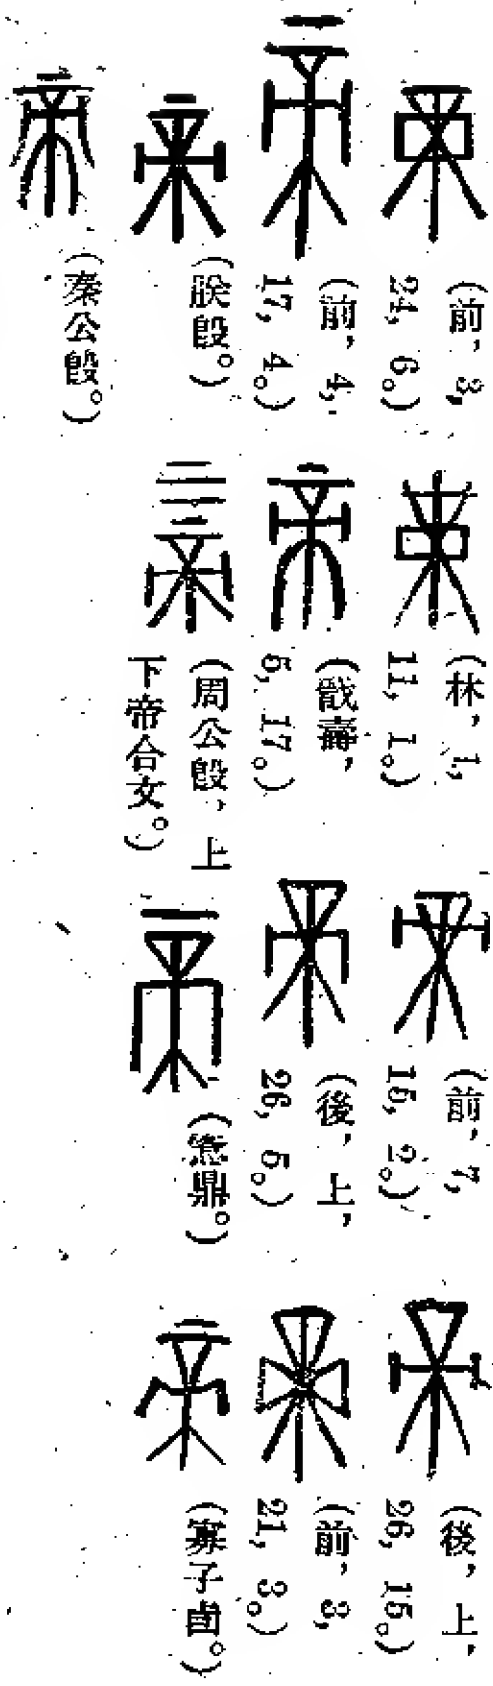 (前, 3,
24, 6。)
(林, 1,
11, 1。)
(前, 7,
15, 2。)
(後, 上,
26, 15。)
(前, 4,
17, 4。)
(戩壽,
5, 17。)
(後, 上,
26, 5。)
(前, 3,
21, 3。)
(𣪘。)
(周公𣪘, 上
下帝合女。)
(鼎。)
(寡子卣。)
(秦公𣪘。)